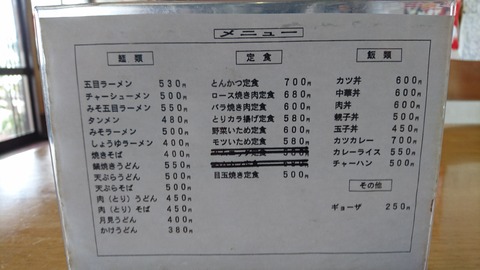 メニュー
麺類
五目ラーメン 530円
チャーシューメン 500円
みそ五目ラーメン 550円
タンメン 480円
みそラーメン 500円
しょうゆラーメン 400円
焼きそば 400円
鍋焼きうどん 550円
天ぷらうどん 500円
天ぷらそば 500円
肉(とり)うどん 450円
肉(とり)そば 450円
月見うどん 400円
かけうどん 380円
定食
とんかつ定食 700円
ロース焼き肉定食 680円
バラ焼き肉定食 600円
とりカラ揚げ定食 580円
野菜いため定食 600円
モツいため定食 580円
目玉焼き定食 500円
飯類
カツ丼 600円
中華丼 600円
肉丼 600円
親子丼 500円
玉子丼 450円
カツカレー 700円
カレーライス 550円
チャーハン 500円
その他
ギョーザ 250円